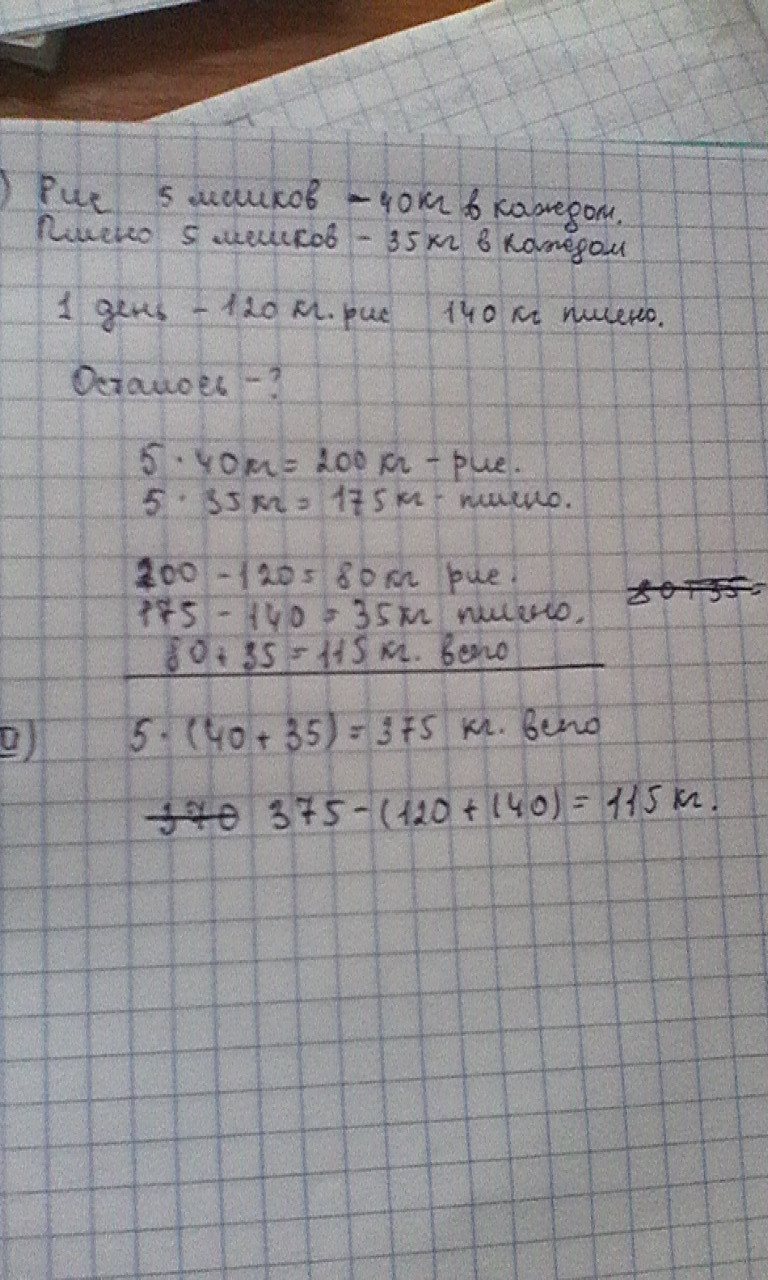 ) Рис 5 мешков - 40кг в каждом.
Пшено 5 мешков - 35кг в каждом
1 день - 120 кг. рис 140 кг пшено.
Осталось - ?
5 · 40кг = 200 кг - рис.
5 · 35кг = 175кг - пшено.
200 - 120 = 80кг рис.
80+35=
175 - 140 = 35кг пшено.
80 + 35 = 115 кг. всего
II) 5 · (40 + 35) = 375 кг. всего
370 375 - (120 + 140) = 115 кг.